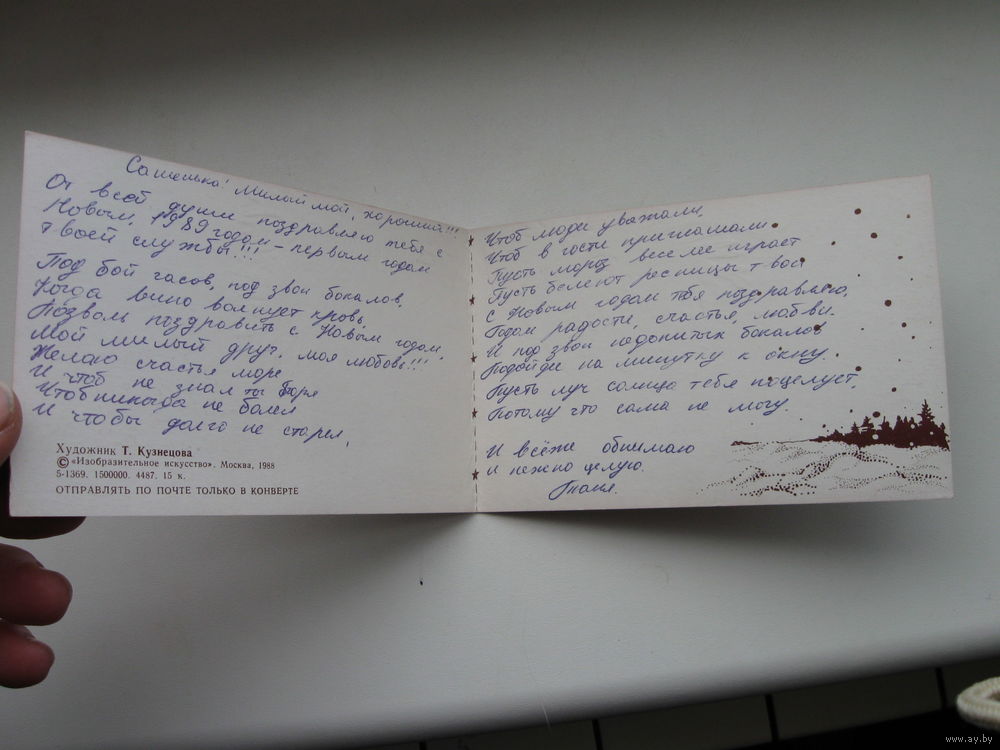 Сашенька! Милый мой, хороший!!!
От всей души поздравляю тебя с
Новым, 1989 годом – первым годом
твоей службы!!!
Под бой часов, под звон бокалов,
Когда вино волнует кровь,
Позволь поздравить с Новым годом,
Мой милый друг, моя любовь!!!
Желаю счастья море
И чтоб не знал ты горя
Чтоб никогда не болел
И чтобы долго не старел,
Художник Т. Кузнецова
© «Изобразительное искусство». Москва, 1988
5-1369. 1500000. 4487. 15 к.
ОТПРАВЛЯТЬ ПО ПОЧТЕ ТОЛЬКО В КОНВЕРТЕ
Чтоб люди уважали,
Чтоб в гости приглашали.
Пусть мороз веселее играет
Пусть белеют ресницы твои
С Новым годом тебя поздравляю,
Годом радости, счастья, любви.
И под звон недопитых бокалов
Подойди на минутку к окну.
Пусть луч солнца тебя поцелует,
Потому что сама не могу.
И всёже обнимаю
и нежно целую.
www.ay.by